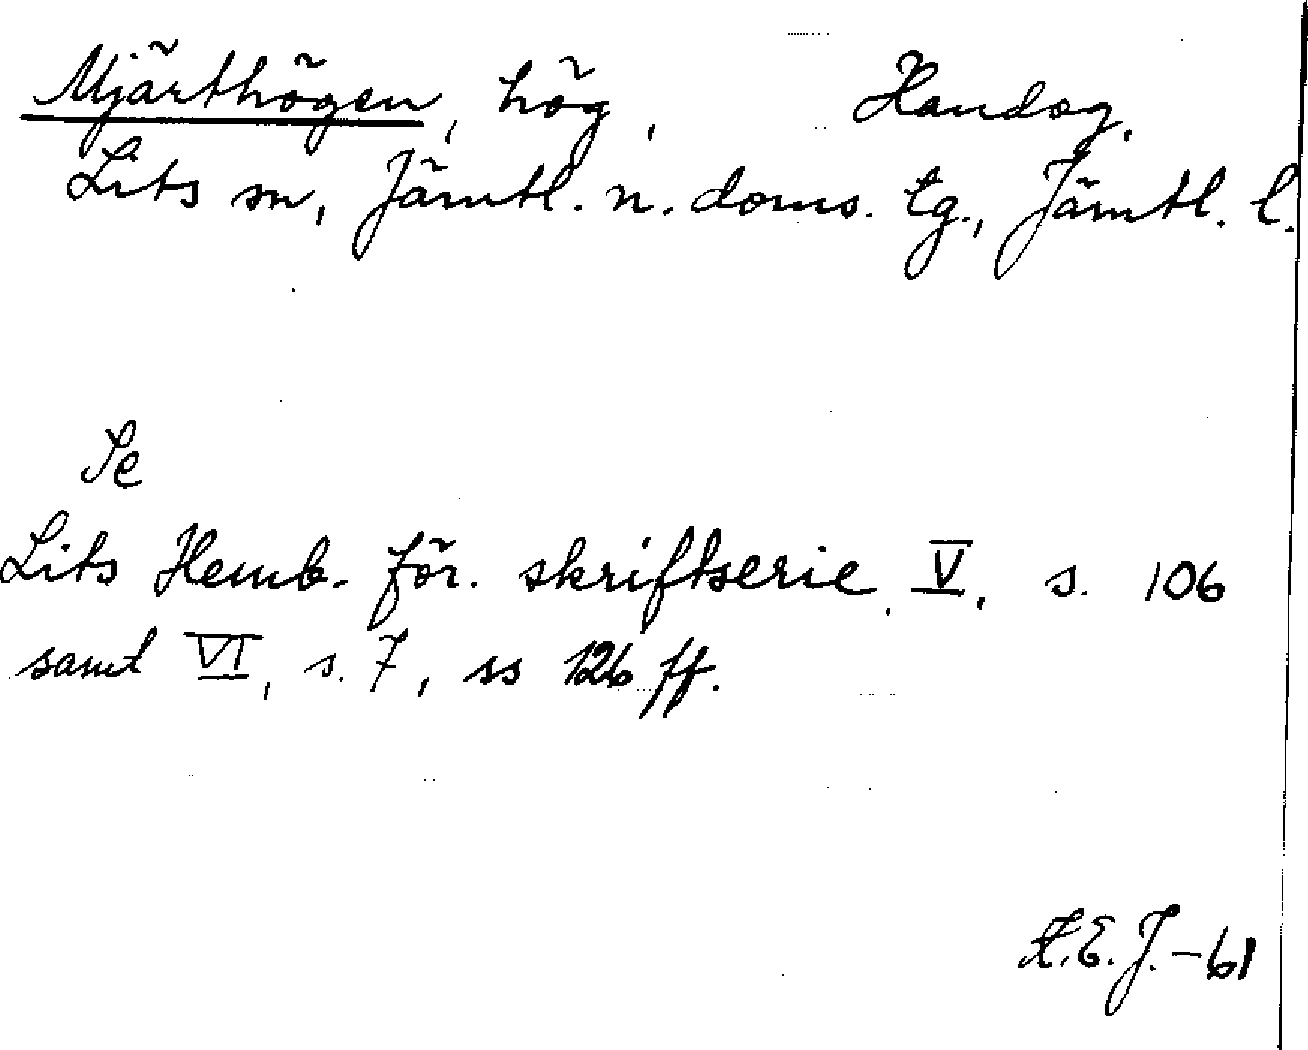 Mjärthögen, hög, Handog,
Lits sn, Jämtl. n. doms. tg., Jämtl. l.
Se
Lits Hemb. för. skriftserie, V, s. 106
samt VI, s. 7, ss 126 ff.
H.E.J. -61